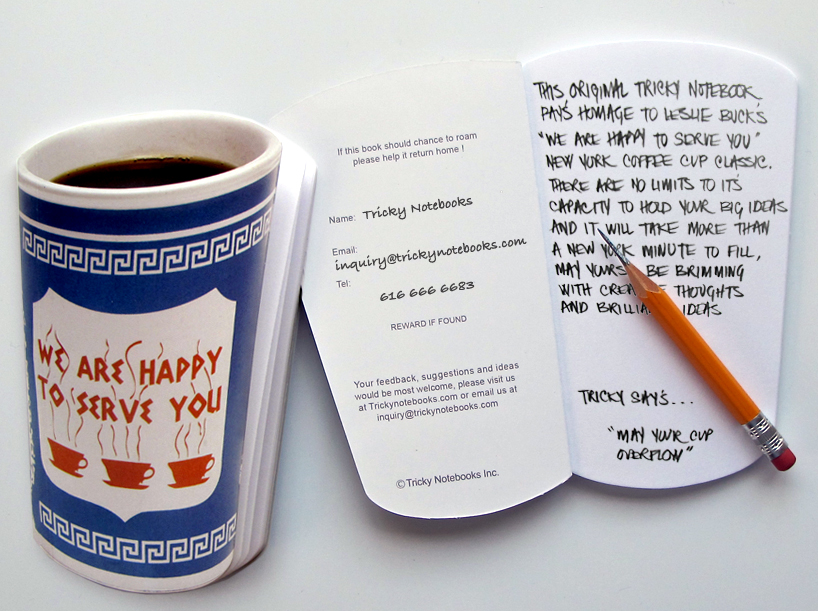 WE ARE HAPPY
TO SERVE YOU
If this book should chance to roam
please help it return home !
Name: Tricky Notebooks
Email:
inquiry@trickynotebooks.com
Tel:
616 666 6683
REWARD IF FOUND
Your feedback, suggestions and ideas
would be most welcome, please visit us
at Trickynotebooks.com or email us at
inquiry@trickynotebooks.com
© Tricky Notebooks Inc.
THIS ORIGINAL TRICKY NOTEBOOK
PAY'S HOMAGE TO LESLIE BUCK'S
"WE ARE HAPPY TO SERVE YOU"
NEW YORK COFFEE CUP CLASSIC.
THERE ARE NO LIMITS TO IT'S
CAPACITY TO HOLD YOUR BIG IDEAS
AND IT WILL TAKE MORE THAN
A NEW YORK MINUTE TO FILL,
MAY YOURS BE BRIMMING
WITH THOUGHTS
AND IDEAS
TRICKY SAY'S...
"MAY YOUR CUP
OVERFLOW"